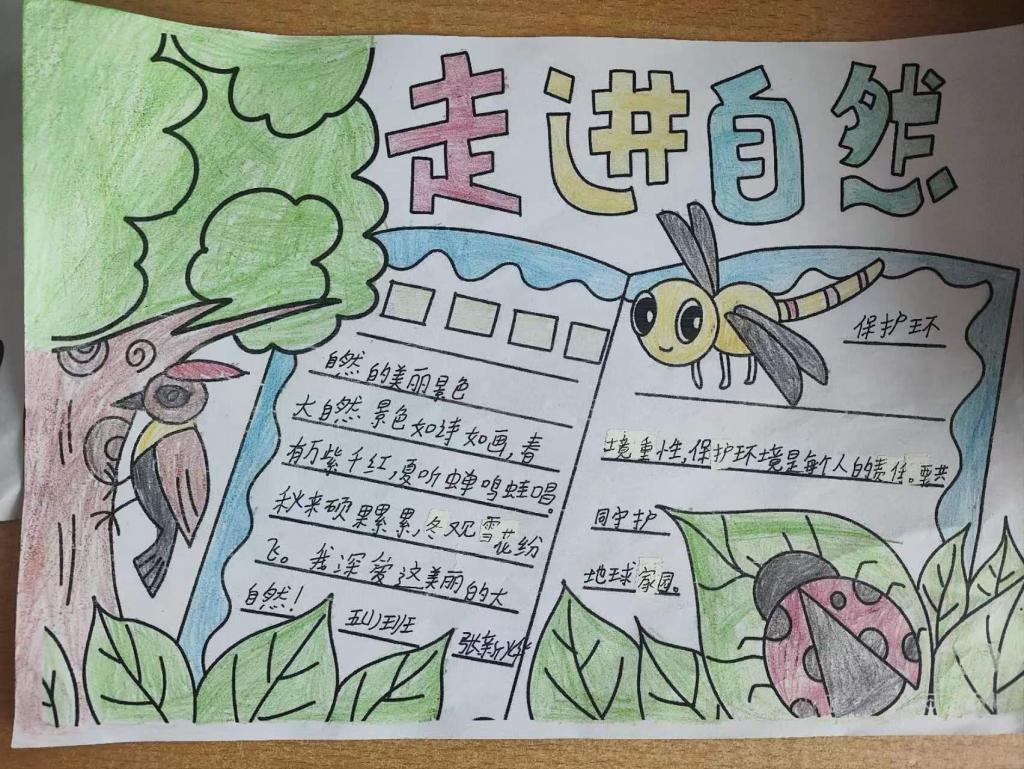 走进自然
自然的美丽景色
大自然景色如诗如画,春
有万紫千红,夏听蝉鸣蛙唱。
秋来硕果累累,冬观雪花纷
飞。我深爱这美丽的大
自然!
五(1)班
张新烨
保护环
境重性,保护环境是每个人的责任。要共
同守护
地球家园。